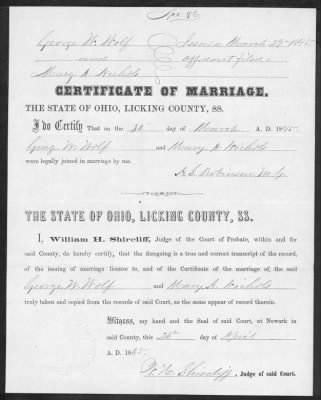 No. 86
George W. Wolf
and
Mary A Nichols
Issued March 29th 1865
affidavit filed
CERTIFICATE OF MARRIAGE.
THE STATE OF OHIO, LICKING COUNTY, SS.
I do Certify That on the 30th day of March A. D. 1865.
George W. Wolf and Mary A Nichols
were legally joined in marriage by me.
Robinson M. G.
THE STATE OF OHIO, LICKING COUNTY, SS.
I, William H. Shircliff, Judge of the Court of Probate, within and for
said County, do hereby certify, that the foregoing is a true and correct transcript of the record,
of the issuing of marriage license to, and of the Certificate of the marriage of, the said
George W. Wolf and Mary A. Nichols
truly taken and copied from the records of said Court, as the same appear of record therein.
Witness, my hand and the Seal of said Court, at Newark in
said County, this day of April
A. D. 1865.
W. H. Shircliff, Judge of said Court.